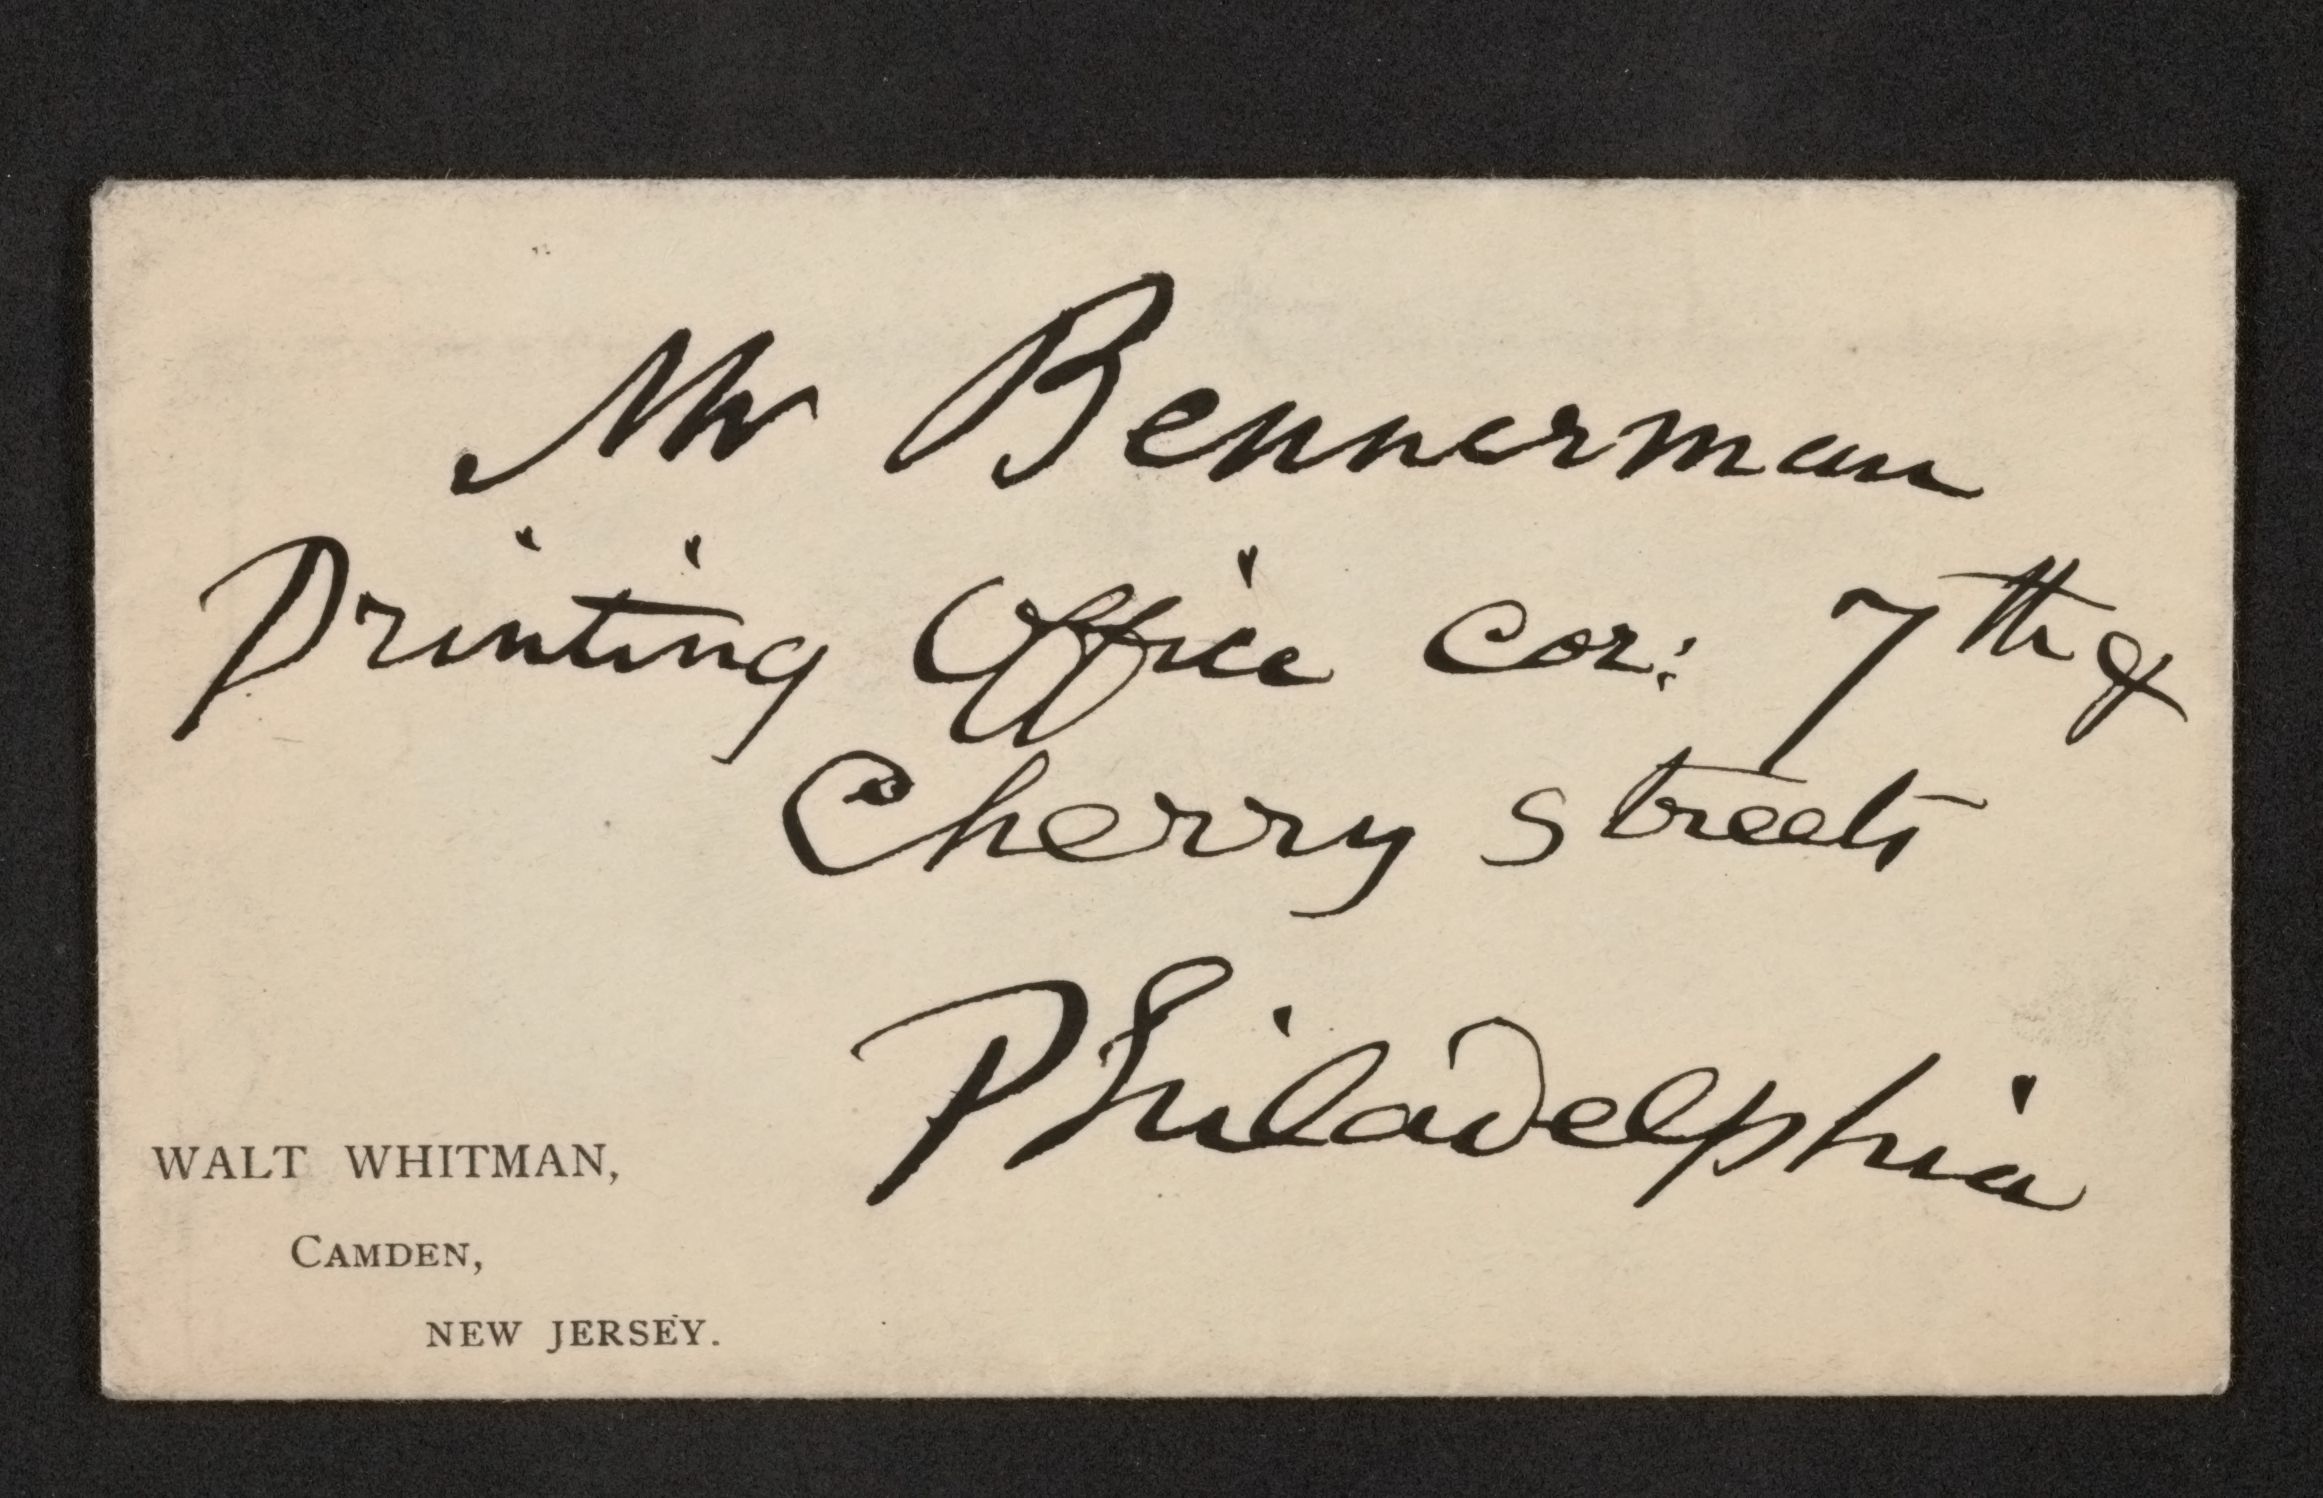 Mr Bennerman
Printing Office cor: 7th &
Cherry streets
Philadelphia
WALT WHITMAN,
CAMDEN,
NEW JERSEY.